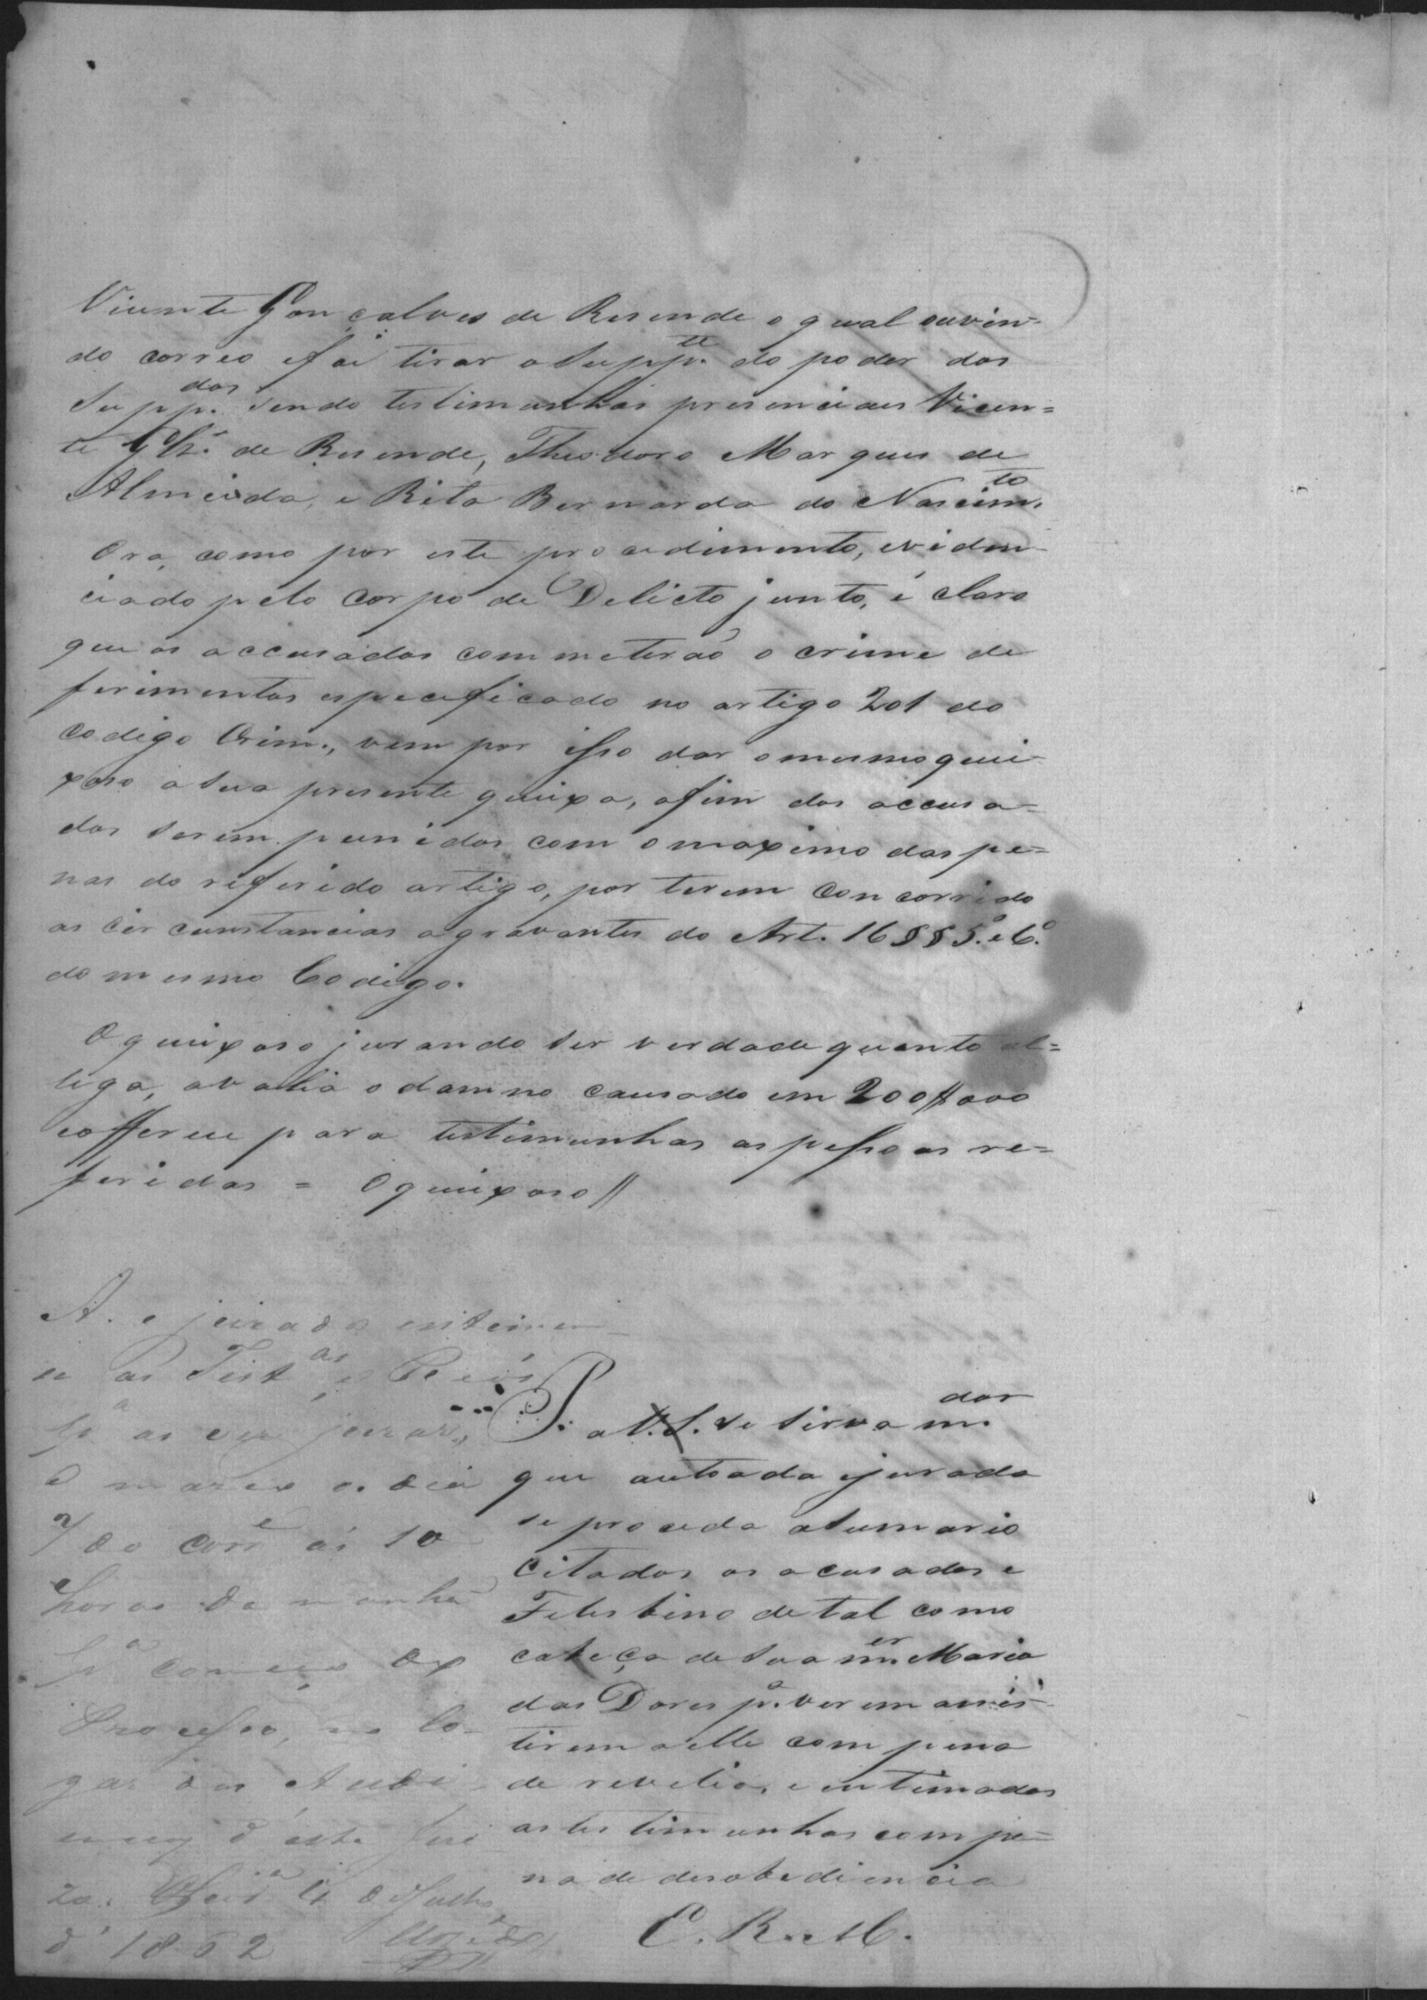 Vicente Gonçalves de Resende o qual ouvin-
do correo e foi tirar o Supp.te do poder dos
Supp.dos sendo testimunhas presenciaes Vicen=
te Glz.' de Resende, Theodoro Marques de
Almeida, e Rita Bernarda do Nascim.to
Ora, como por este procedimento, eviden-
ciado pelo corpo de Delicto junto, é claro
que os accusados commeterão o crime de
ferimentos especificado no artigo 201 do
codigo Crim., vem por isso dar o mesmo quei-
xoso a sua presente queixa, afim dos accusa-
dos serem punidos com o maximo das pe=
nas do referido artigo, por terem concorrido
as circunstancias agravantes do Art. 16 §§ 5.º e 6.º
do mesmo Codigo.
O queixoso jurando ser verdade quanto al=
lega, avalia o damno causado em 200$000
e offerece para testimunhas as pessoas re=
feridas = O queixoso //
A. e jurada intimem
se as Test.as e Reos
p.a as ver jurar,
e marco o dia
7 do corr.e ás 10
horas da manhã
p.a começo do
Processo, no lo-
gar das Audi-
encias d'este Jui
zo. 4 de Julho
d' 1852
P. a V.S. se sirva m.dar
que autoada e jurada
se proceda a sumario
citados os acusados e
Felesbino de tal como
cabeça de sua m.er Maria
das Dores p.a verem assis-
tirem a elle com pena
de revelia, e intimados
as testimunhas com pe-
na de desobediencia
E. R. M.